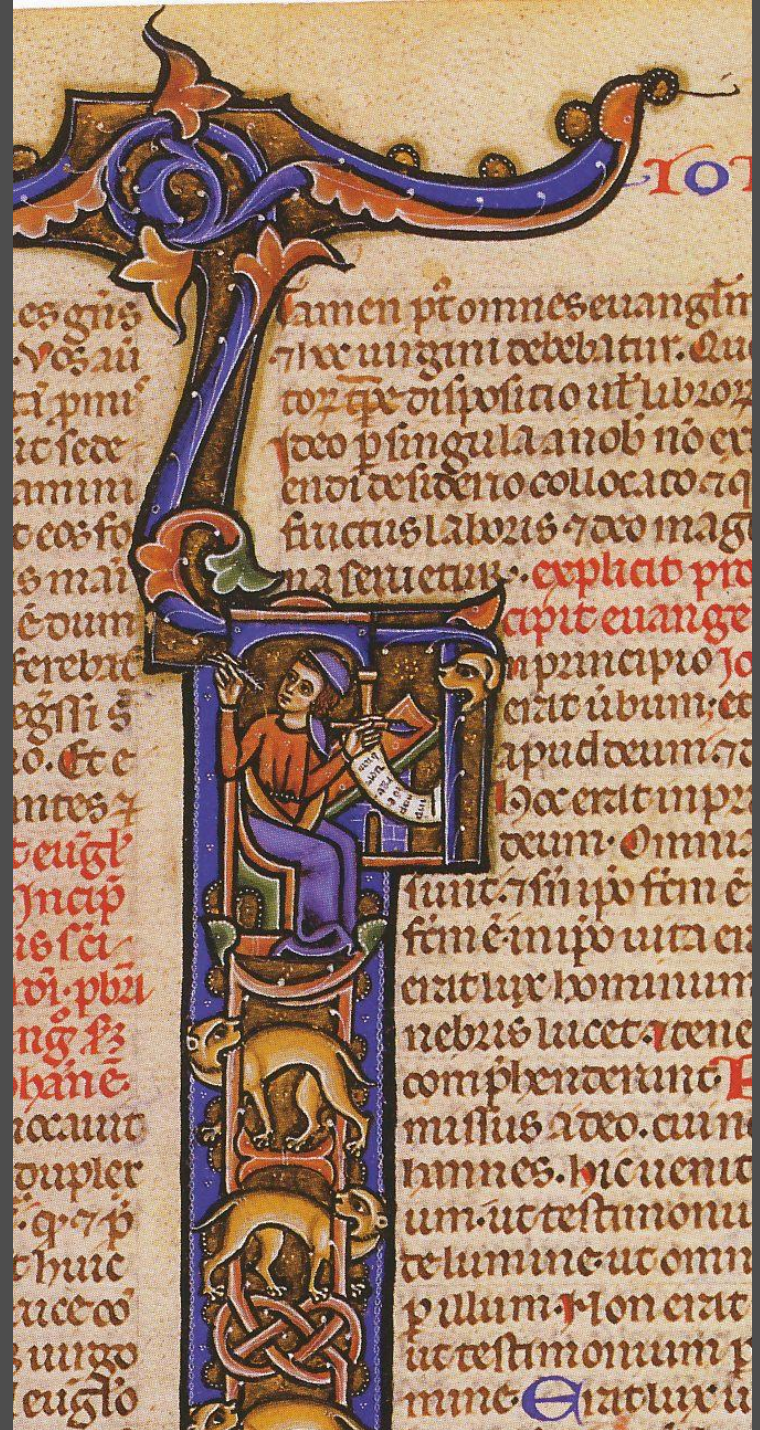 IO
es gñs
Vos aũ
ti pmi
ut sede
amini
t eos fo
s mai
ē dum
ferebat
egssi s̃
o. Et e
ntes ⁊
eug̃l
Incip̃
is sc̃i
pb̃ri
phane
uocauit
duplex
q ⁊ p̃
t huic
ruce cõ
uirgo
eugl̃o
Tamen pt̃ omnes euangl̃iu
⁊ hec uirgini debebatur. Qu
disposicio ul̃ libror
Ideo p singula a nob nõ ex
endi desiderio collocato ⁊ q
fructus laboris ⁊ deo mag
na seruetur. explicit pro
cipit euange
n principio Io
erat ũbum. et
apud deum. ⁊ d
Hoc erat in pri
deum. Omnia
sunt. ⁊ sñ ip̃o fc̃m ẽ
fc̃m ẽ. in ip̃o uita er
erat lux hominum
nebris lucet. ⁊ tene
comp̃henderunt. F
missus a deo. cui n
hannes. hic uenit
um. ut testimoniu
de lumine. ut omn
p illum. Non erat
ut testimonium p
mine. Erat lux u